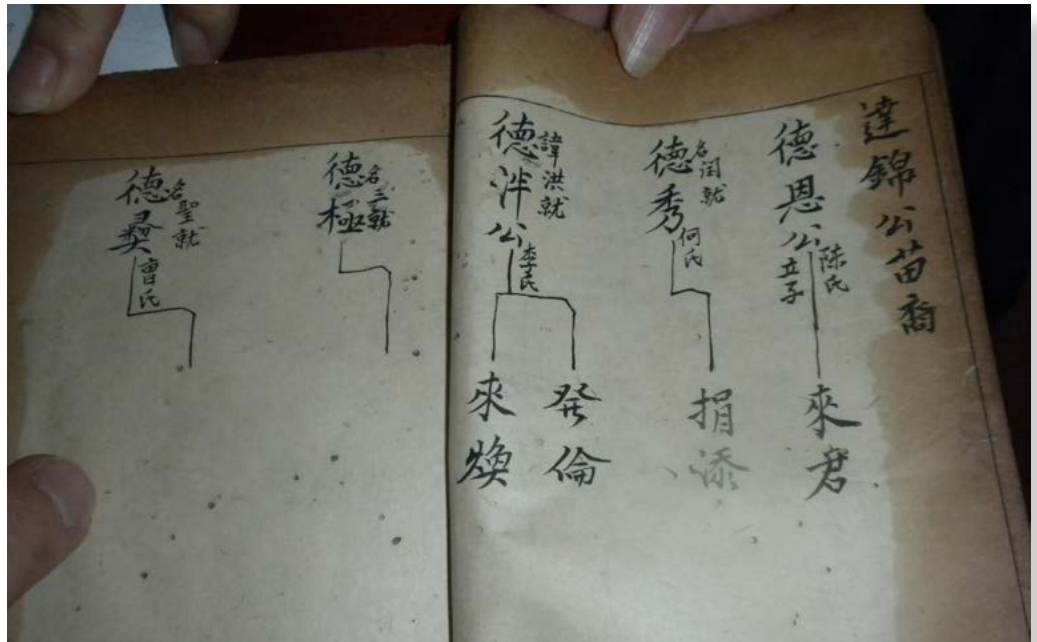 達錦公苗裔
德恩公
陳氏
立子
來君
德秀
名闰就
何氏
捐添
德泮公
諱洪就
李氏
發倫
來煥
德極
名三就
德彛
名聖就
曹氏